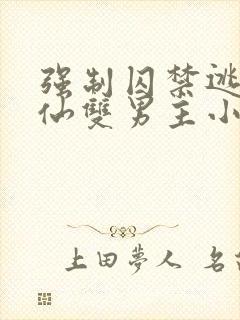 强制囚禁逃
仙雙男主小
上田夢人 名